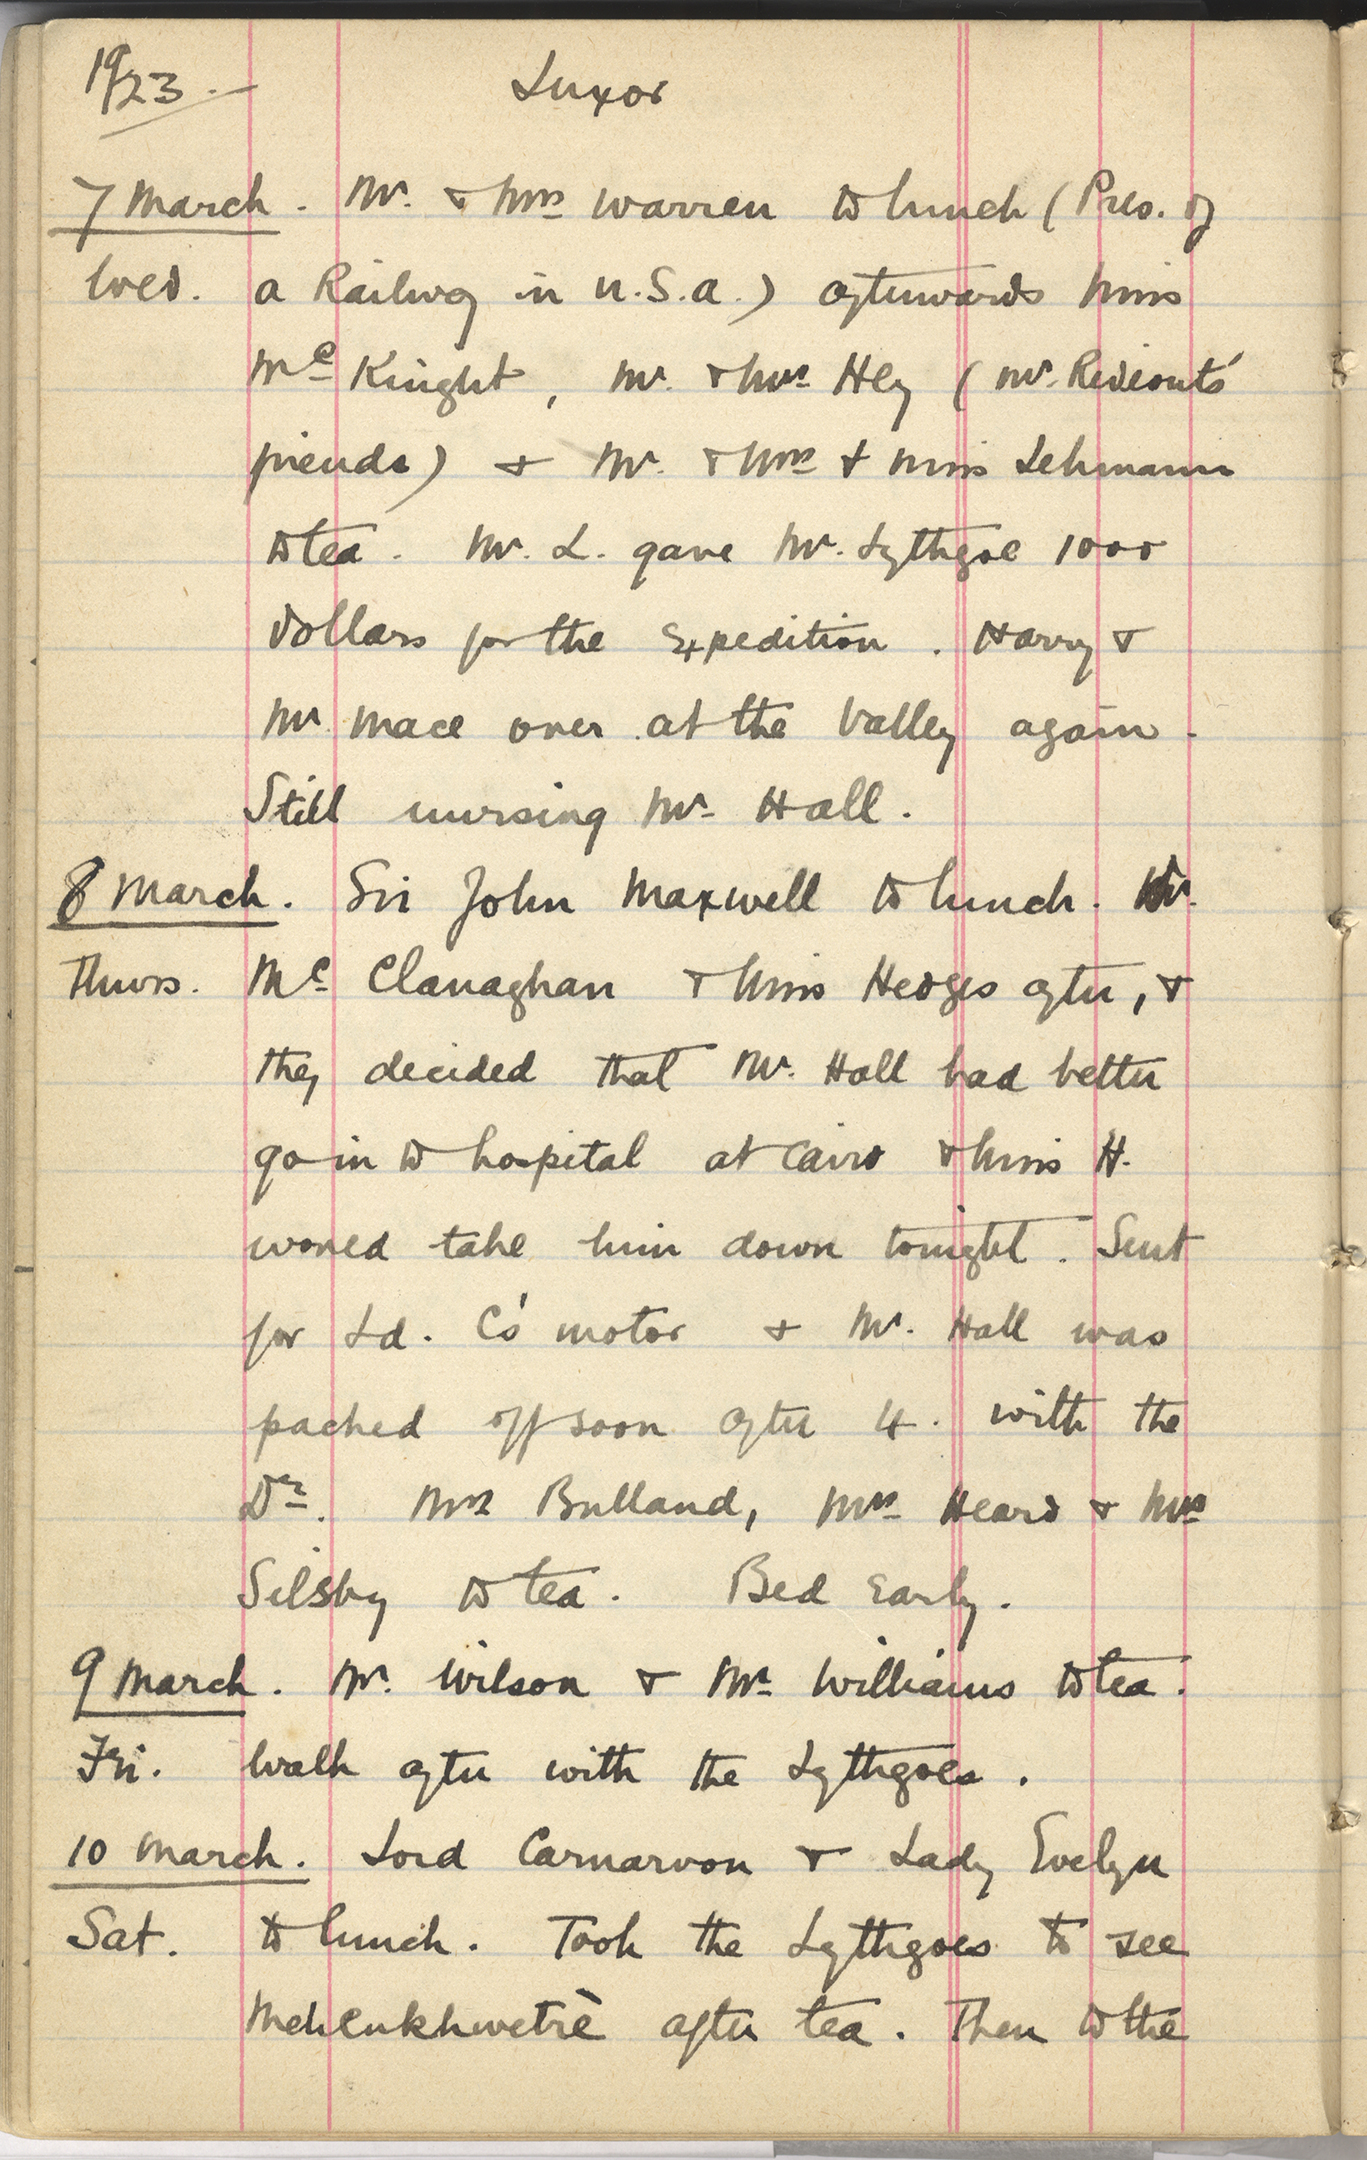 1923. Luxor
7 March. Mr. & Mrs Warren to lunch (Pres. of
Wed. a Railway in U.S.A.) afterwards Miss
Mc Knight, Mr. & Mrs Hey (Mr. Rideout's
friends) & Mr. & Mrs & Miss Lehmann
to tea. Mr. L. gave Mr. Lythgoe 1000
dollars for the Expedition. Harry &
Mr. Mace over at the Valley again.
Still nursing Mr. Hall.
8 March. Sir John Maxwell to lunch. Dr.
Thurs. Mc Clanaghan & Miss Hedges after, &
they decided that Mr. Hall had better
go in to hospital at Cairo & Miss H.
would take him down tonight. Sent
for Ld. C's motor & Mr. Hall was
packed off soon after 4. with the
Dr. Mrs Bulland, Mrs Heard & Mrs
Silsby to tea. Bed Early.
9 March. Mr. Wilson & Mr. Williams to tea.
Fri. Walk after with the Lythgoes.
10 March. Lord Carnarvon & Lady Evelyn
Sat. to lunch. Took the Lythgoes to see
Mehenkhwetrè after tea. Then to the